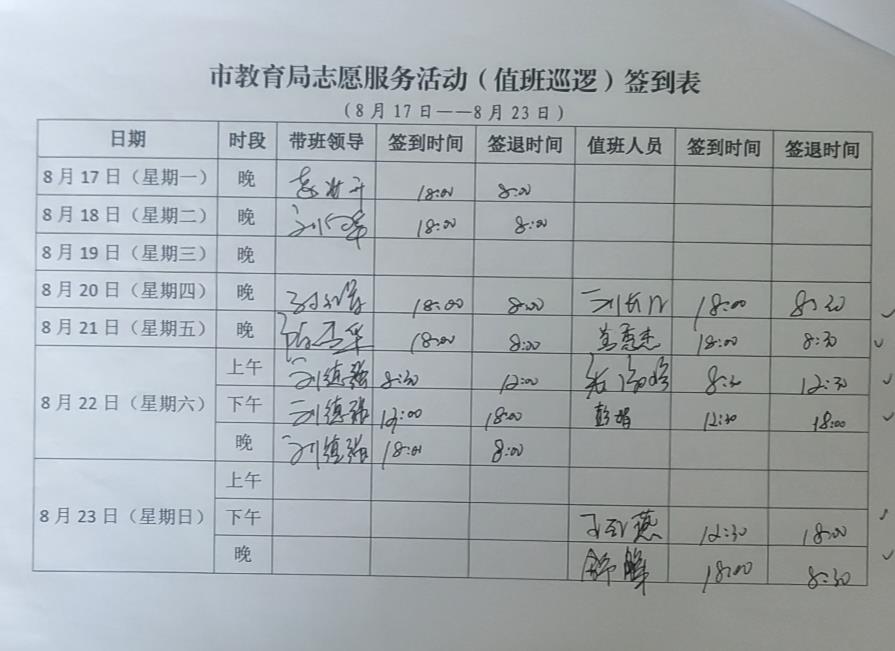 市教育局志愿服务活动（值班巡逻）签到表
（8月17日——8月23日）
日期 时段 带班领导 签到时间 签退时间 值班人员 签到时间 签退时间
8月17日（星期一） 晚 18:00 8:00
8月18日（星期二） 晚 18:00 8:00
8月19日（星期三） 晚
8月20日（星期四） 晚 18:00 8:00 18:00 8:30
8月21日（星期五） 晚 18:00 8:00 18:00 8:30
8月22日（星期六） 上午 刘德强 8:30 12:00 8:30 12:30
下午 刘德强 18:00 彭娟 12:30 18:00
晚 刘德强 18:00 8:00
8月23日（星期日） 上午
下午 12:30 18:00
晚 18:00 8:30